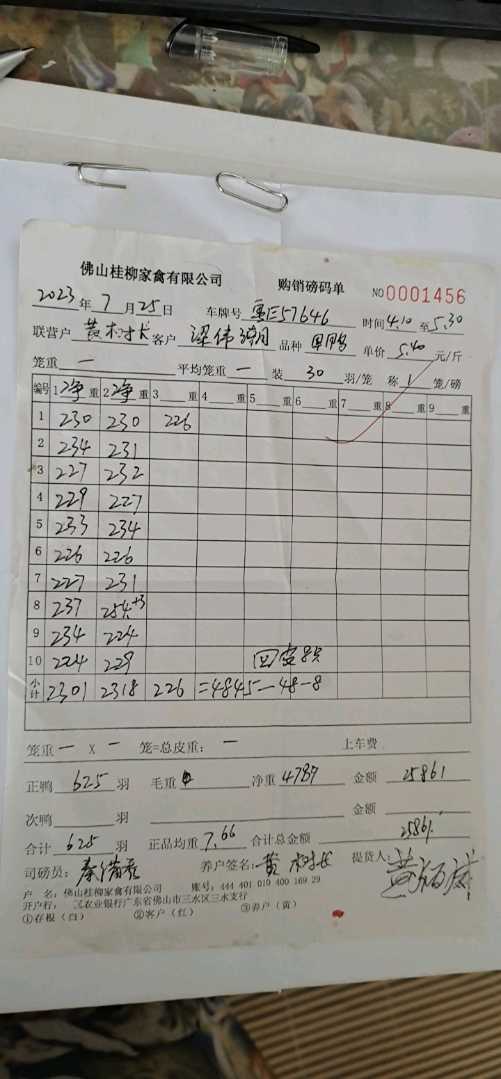 佛山桂柳家禽有限公司 购销磅码单 NO0001456
2023年7月25日 车牌号 E57646 时间4.10至5.30
联营户 黄树长 客户 梁伟 品种 单价 5.40 元/斤
笼重 一 平均笼重 一 装 30 羽/笼 称 1 笼/磅
编号 1净重 2净重 3 重 4 重 5 重 6 重 7 重 8 重 9 重
1 230 230 226
2 234 231
3 227 232
4 229 227
5 233 234
6 226 226
7 227 231
8 237 254+3
9 234 224
10 224 229
小计 2301 2318 226 =4845-48-8
笼重 一 X 一 笼=总皮重: 一 上车费
正鸭 625 羽 毛重 净重 4789 金额 25861
次鸭 羽 金额
合计 625 羽 正品均重 7.66 合计总金额 25861.
司磅员: 养户签名: 黄树长 提货人:
户 名: 佛山桂柳家禽有限公司 账号: 444 401 010 400 169 29
开户行: 农业银行广东省佛山市三水区三水支行
①存根(白) ②客户(红) ③养户(黄)